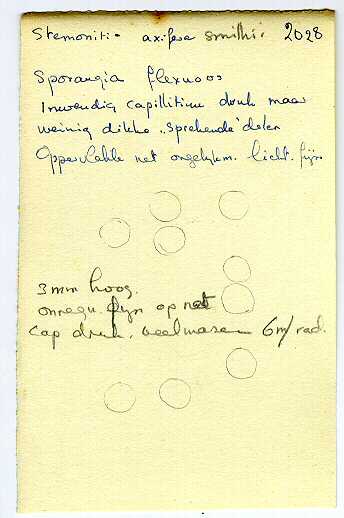 Stemonitis axifera smithii 2028
Sporangia flexuoos
Inwendig capillitium druk maar
weinig dikke "sprekende" delen
Oppervlakte net ongelykm. licht. fyn
3mm hoog.
onregu. fyn op net
cap druk. veel mazen 6m/rad.